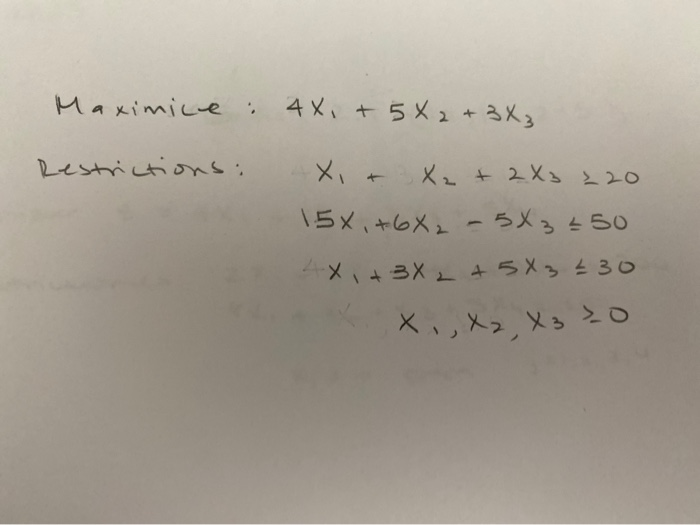 Maximice : 4X₁ + 5X₂ + 3X₃
Restrictions : X₁ + X₂ + 2X₃ ≥ 20
15X₁ + 6X₂ - 5X₃ ≤ 50
X₁ + 3X₂ + 5X₃ ≤ 30
X₁, X₂, X₃ ≥ 0